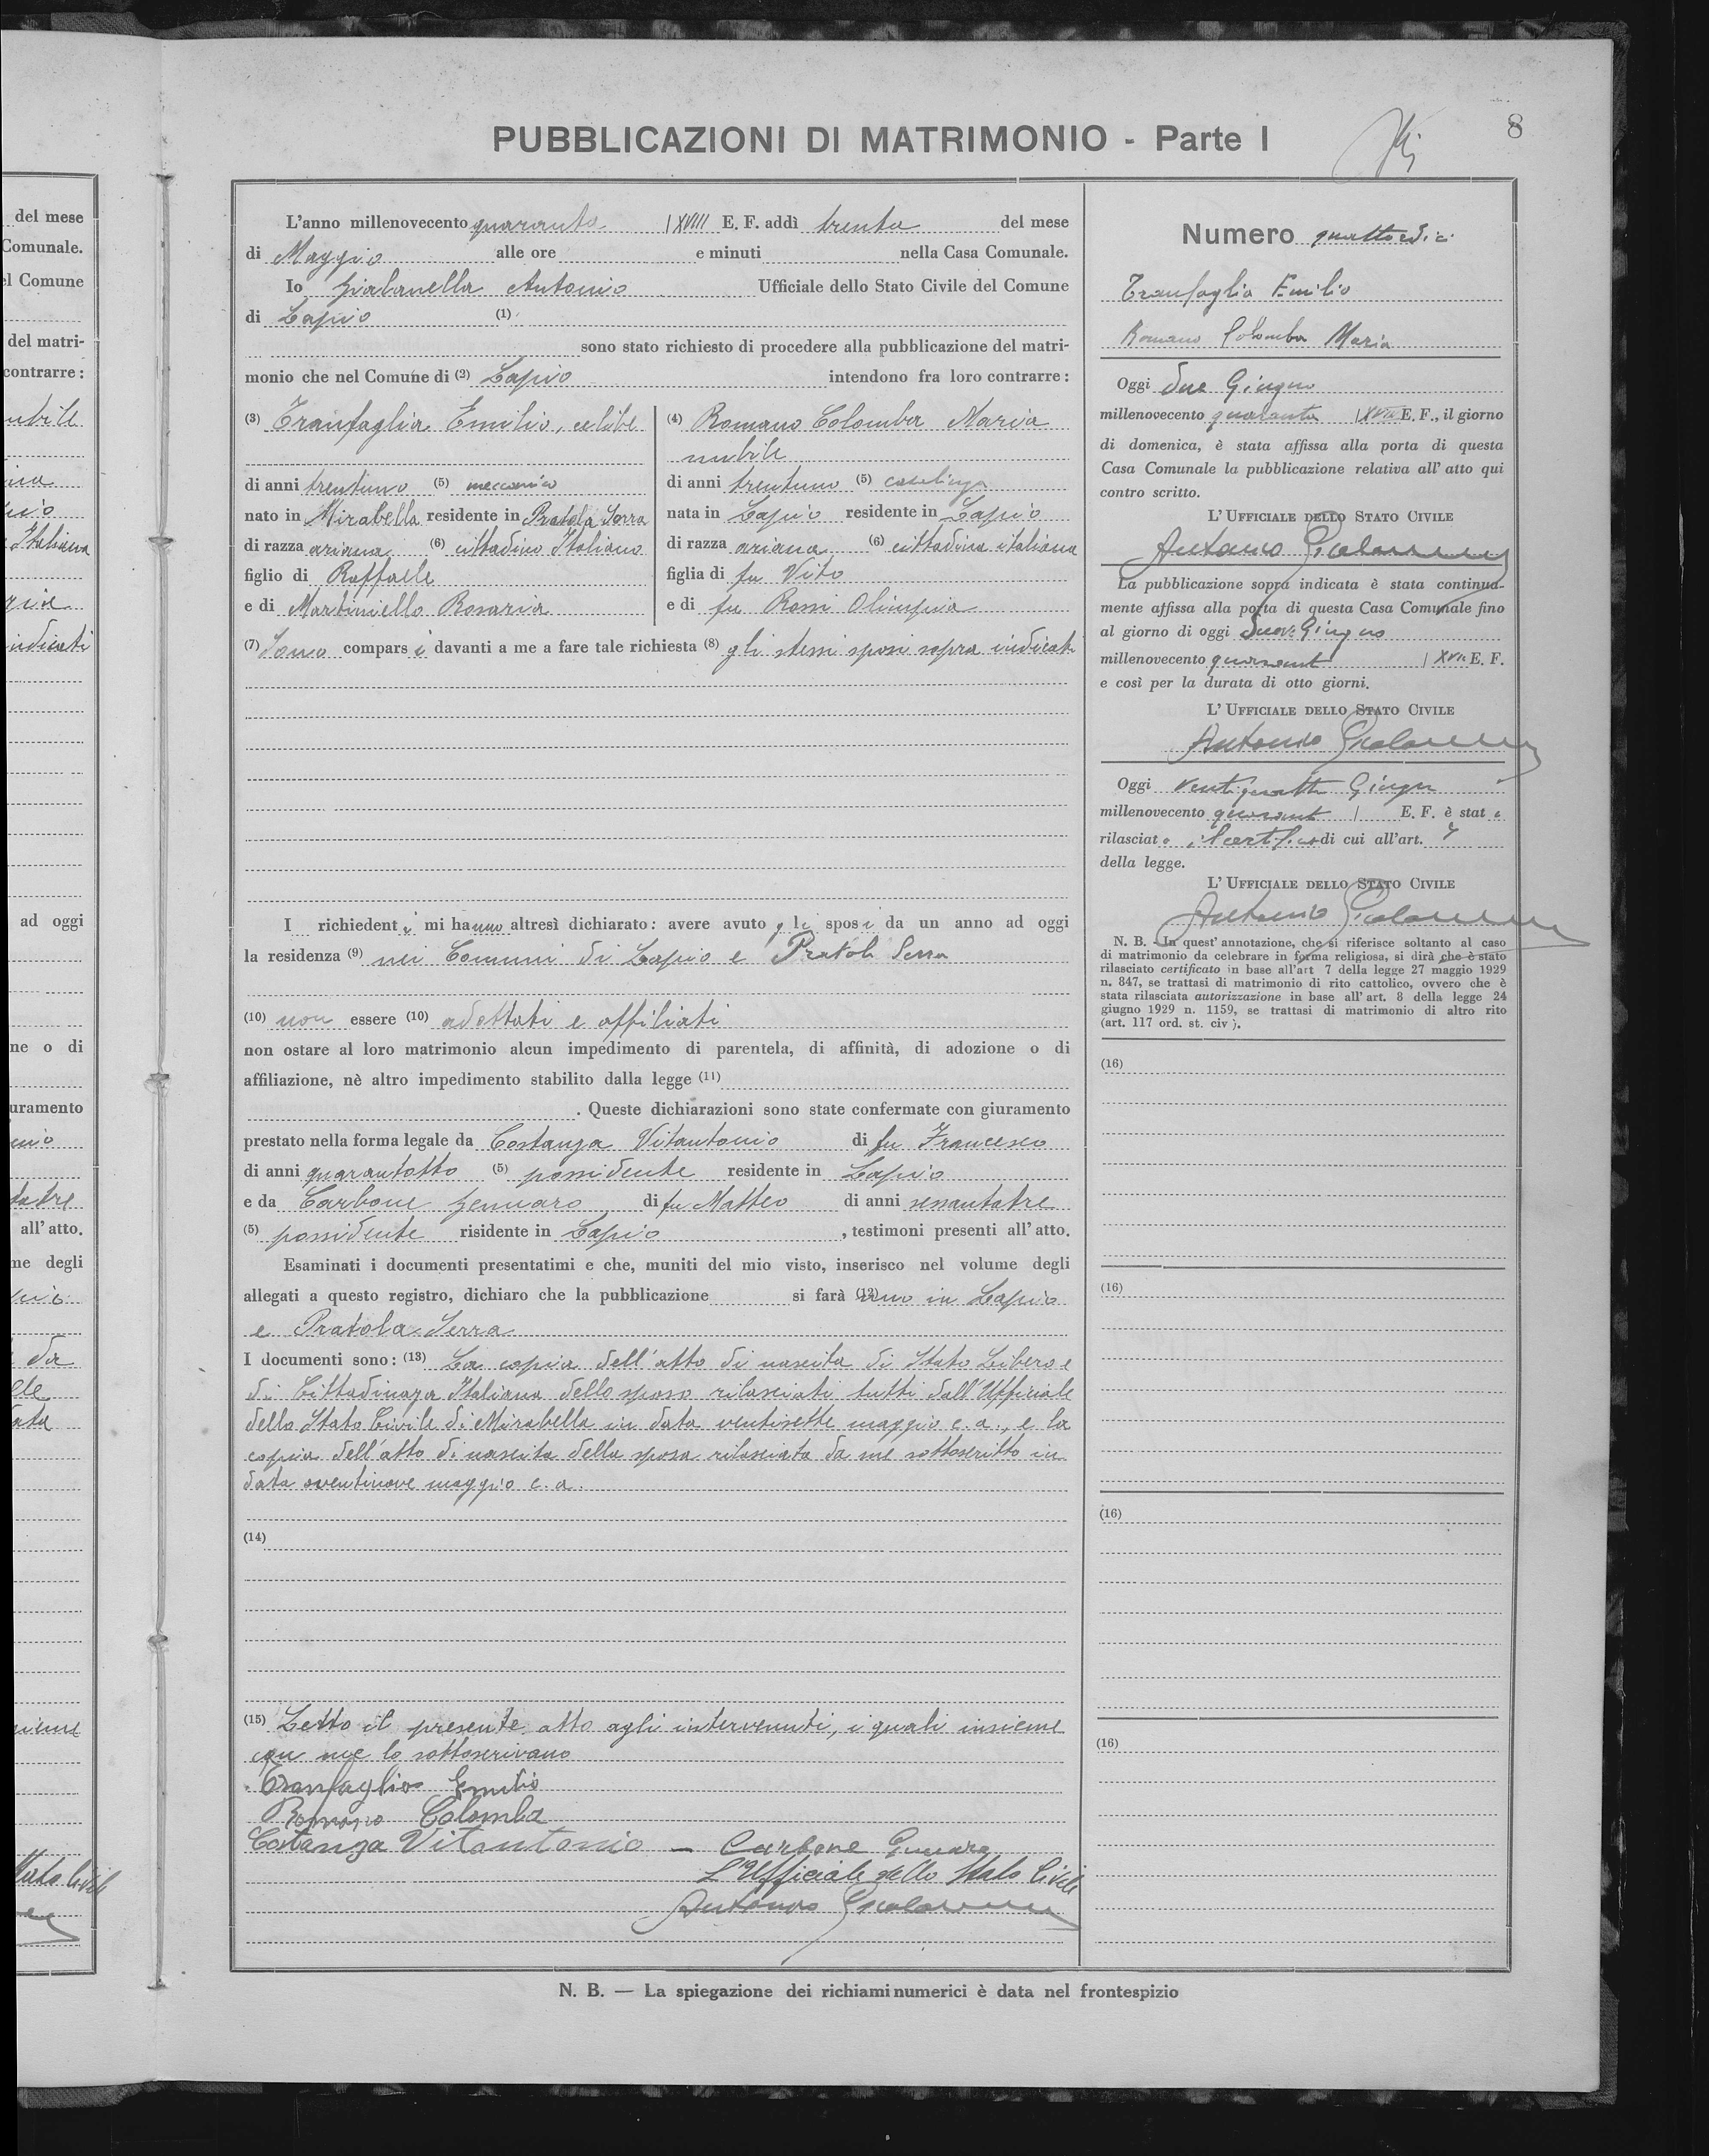 del mese
Comunale.
el Comune
del matri-
contrarre:
nubile
Italiana
indicati
ad oggi
ne o di
uramento
tatre
all' atto.
ne degli
da
insieme
Stato Civile
PUBBLICAZIONI DI MATRIMONIO - Parte I
8
L'anno millenovecento quaranta | XVIII E. F. addì trenta del mese
di Maggio alle ore e minuti nella Casa Comunale.
Io Gialanella Antonio Ufficiale dello Stato Civile del Comune
di Lapio (1)
sono stato richiesto di procedere alla pubblicazione del matri-
monio che nel Comune di (2) Lapio intendono fra loro contrarre:
(3) Tranfaglia Emilio, celibe
di anni trentuno (5) meccanico
nato in Mirabella residente in Pratola Serra
di razza ariana (6) cittadino Italiano
figlio di Raffaele
e di Martiniello Rosaria
(4) Romano Colomba Maria
nubile
di anni trentuno (5) casalinga
nata in Lapio residente in Lapio
di razza ariana (6) cittadina italiana
figlia di fu Vito
e di fu Rossi Olimpia
(7) Sono compars i davanti a me a fare tale richiesta (8) gli stessi sposi sopra indicati
I richiedent i mi hanno altresì dichiarato: avere avuto gli sposi da un anno ad oggi
la residenza (9) nei Comuni di Lapio e Pratola Serra
(10) non essere (10) adottati e affiliati
non ostare al loro matrimonio alcun impedimento di parentela, di affinità, di adozione o di
affiliazione, nè altro impedimento stabilito dalla legge (11)
. Queste dichiarazioni sono state confermate con giuramento
prestato nella forma legale da Costanza Vitantonio di fu Francesco
di anni quarantotto (5) possidente residente in Lapio
e da Carbone Gennaro di fu Matteo di anni sessantatre
(5) possidente risidente in Lapio , testimoni presenti all' atto.
Esaminati i documenti presentatimi e che, muniti del mio visto, inserisco nel volume degli
allegati a questo registro, dichiaro che la pubblicazione si farà (12) in Lapio
e Pratola Serra
I documenti sono: (13) La copia dell'atto di nascita di Stato Libero e
di Cittadinaza Italiana dello sposo rilasciati tutti dall'Ufficiale
dello Stato Civile di Mirabella in data ventisette maggio c. a., e la
copia dell'atto di nascita della sposa rilasciata da me sottoscritto in
data ventinove maggio c. a.
(14)
(15) Letto il presente atto agli intervenuti, i quali insieme
con me lo sottoscrivano
Tranfaglia Emilio
Romano Colomba
Costanza Vitantonio — Carbone Gennaro
L'Ufficiale dello Stato Civile
Antonio Gialanella
Numero quattordici
Tranfaglia Emilio
Romano Colomba Maria
Oggi due Giugno
millenovecento quaranta | XVIII E. F., il giorno
di domenica, è stata affissa alla porta di questa
Casa Comunale la pubblicazione relativa all' atto qui
contro scritto.
L' UFFICIALE DELLO STATO CIVILE
Antonio Gialanella
La pubblicazione sopra indicata è stata continua-
mente affissa alla porta di questa Casa Comunale fino
al giorno di oggi Giugno
millenovecento quarant | E. F.
e così per la durata di otto giorni.
L' UFFICIALE DELLO STATO CIVILE
Antonio Gialanella
Oggi ventiquattro Giugno
millenovecento quarant | E. F. è stat o
rilasciat o il certificato di cui all'art. 7
della legge.
L' UFFICIALE DELLO STATO CIVILE
Antonio Gialanella
N. B. - In quest' annotazione, che si riferisce soltanto al caso
di matrimonio da celebrare in forma religiosa, si dirà che è stato
rilasciato certificato in base all'art 7 della legge 27 maggio 1929
n. 847, se trattasi di matrimonio di rito cattolico, ovvero che è
stata rilasciata autorizzazione in base all' art. 8 della legge 24
giugno 1929 n. 1159, se trattasi di matrimonio di altro rito
(art. 117 ord. st. civ ).
(16)
(16)
(16)
(16)
N. B. — La spiegazione dei richiami numerici è data nel frontespizio